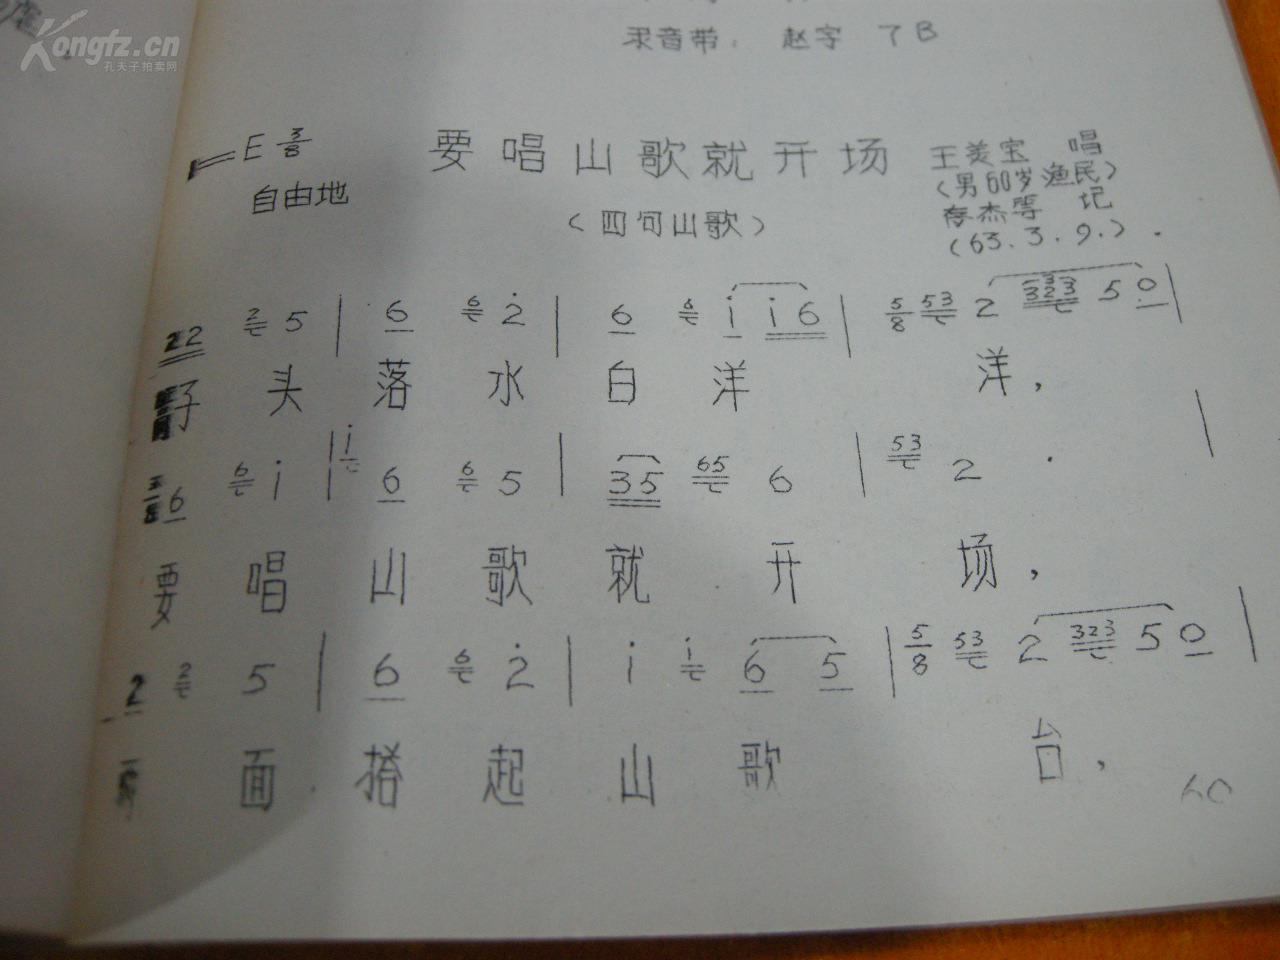 Kongfz.cn
孔夫子拍卖网
录音带: 赵字 7B
1=E 3/8
自由地
要唱山歌就开场
(四句山歌)
王美宝 唱
(男60岁渔民)
存杰等 记
(63.3.9.)
22 2 5 | 6 6 2̇ | 6 6 i i6 | 5/8 53 2 323 5 0 |
头 落 水 白 洋 洋,
6 6 i | i 6 6 5 | 35 65 6 | 53 2 · |
要 唱 山 歌 就 开 场,
2 2 5 | 6 6 2̇ | i i 6 5 | 5/8 53 2 323 5 0 |
面 搭 起 山 歌 台,
60